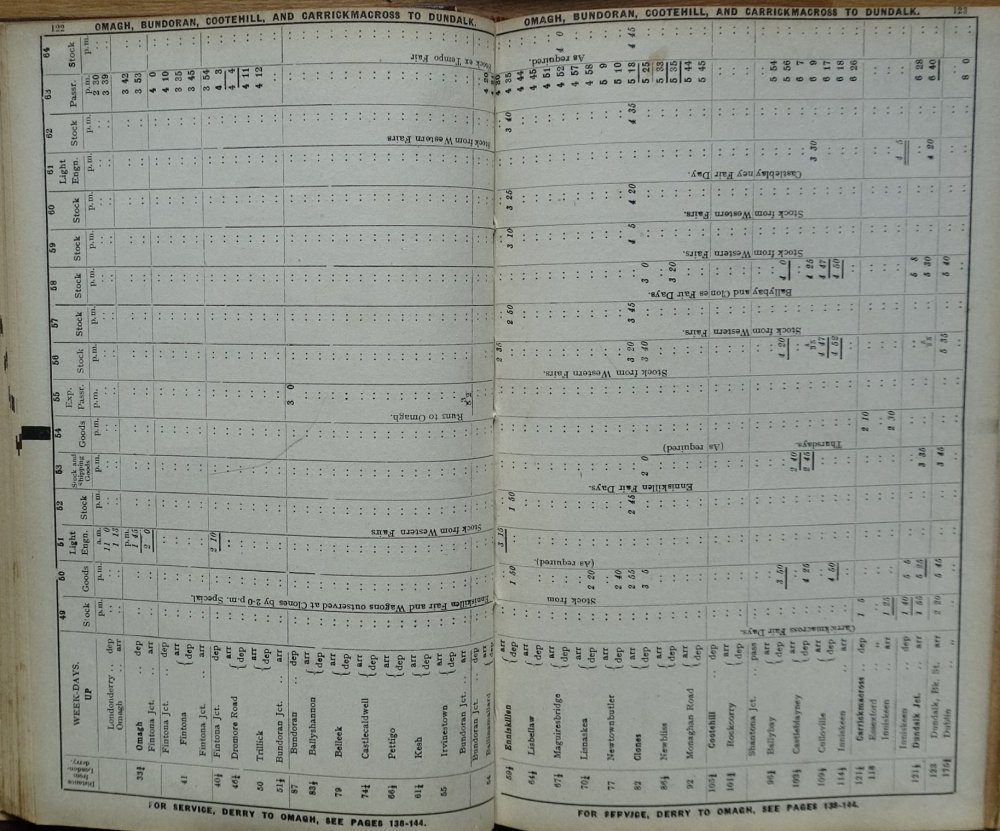 122
OMAGH, BUNDORAN, COOTEHILL, AND CARRICKMACROSS TO DUNDALK.
Distance from London-derry.
WEEK-DAYS.
UP
49 50 51 52 53 54 55 56 57 58 59 60 61 62 63 64
Stock Goods Light Engn. Stock Stock and Shipping Goods Goods Exp. Passr. Stock Stock Stock Stock Stock Light Engn. Stock Passr. Stock
p.m. p.m. a.m. p.m. p.m. p.m. p.m. p.m. p.m. p.m. p.m. p.m. p.m. p.m. p.m. p.m.
Londonderry .. dep 11 0 2 30
Omagh .. arr 1 15 3 39
p.m.
33¾ Omagh .. dep 1 45 3 42
Fintona Jct. arr 2 0 3 53
Fintona Jct. dep 4 0
41 Fintona { arr 4 10
dep 3 35
Fintona Jct. arr 3 45
40½ Fintona Jct. dep 2 10 3 54
46½ Dromore Road { arr 4 3
dep 4 4
50 Trillick { arr 4 11
dep 4 12
51½ Bundoran Jct. arr
87 Bundoran .. dep 3 0
83½ Ballyshannon { arr
dep
79 Belleek { arr
dep
74¼ Castlecaldwell { arr
dep
66½ Pettigo { arr
dep
61½ Kesh { arr
dep
55 Irvinestown { arr
dep
Bundoran Jct. arr
Bundoran Jct. dep
54 Ballinamallard { arr
Enniskillen Fair and Wagons outserved at Clones by 2-0 p.m. Special.
Stock from Western Fairs
Runs to Omagh.
Stock from Western Fairs
Stock ex Tempo Fair
FOR SERVICE, DERRY TO OMAGH, SEE PAGES 138-144.
OMAGH, BUNDORAN, COOTEHILL, AND CARRICKMACROSS TO DUNDALK.
123
59¼ Enniskillen { arr 3 15 2 35
dep 1 50 1 50 2 50 3 10 3 25 3 40 4 35
64¼ Lisbellaw { arr 4 44
dep 4 45
67¼ Maguiresbridge { arr 4 51
dep 4 52 4 0
70¼ Lisnaskea { arr 4 57
dep 2 20 4 58
77 Newtownbutler { arr 5 9
dep 2 40 5 10
82 Clones { arr 2 55 2 45 3 20 3 45 4 5 4 20 4 35 5 18 4 45
dep 3 5 2 0 3 40 3 0 5 25
86¼ Newbliss { arr 5 33
dep 3 20 5 35
92 Monaghan Road { arr 5 44
dep 5 45
105¼ Cootehill .. dep
101¼ Rockcorry .. arr
Shantona Jct. pass
96¼ Ballybay { arr 5 54
dep 3 50 2 40 4 20 4 0 5 56
103¼ Castleblayney { arr 2 45 6 7
dep 4 25 4 25 3 30 6 9
109¼ Culloville { arr 4 47 4 47 6 17
dep 4 50 4 52 4 50 6 18
114½ Inniskeen .. arr 6 26
121¼ Carrickmacross dep 1 5 2 10
118 Essexford
Inniskeen arr 1 25 2 30
Inniskeen dep 1 40 5 5 4 5
121¼ Dundalk Jct. arr 1 55 5 25 3 35 5 8 6 28
122 Dundalk, Bk. St. arr 2 20 5 45 3 45 5 30 4 20 6 40
176¼ Dublin 5 35 5 40 8 0
Carrickmacross Fair Days.
Stock from
(As required).
Enniskillen Fair Days.
(As required)
Thursdays.
Stock from Western Fairs.
Stock from Western Fairs.
Ballybay and Clones Fair Days.
Stock from Western Fairs.
Stock from Western Fairs.
Castleblayney Fair Day.
As required.
FOR SERVICE, DERRY TO OMAGH, SEE PAGES 138-144.